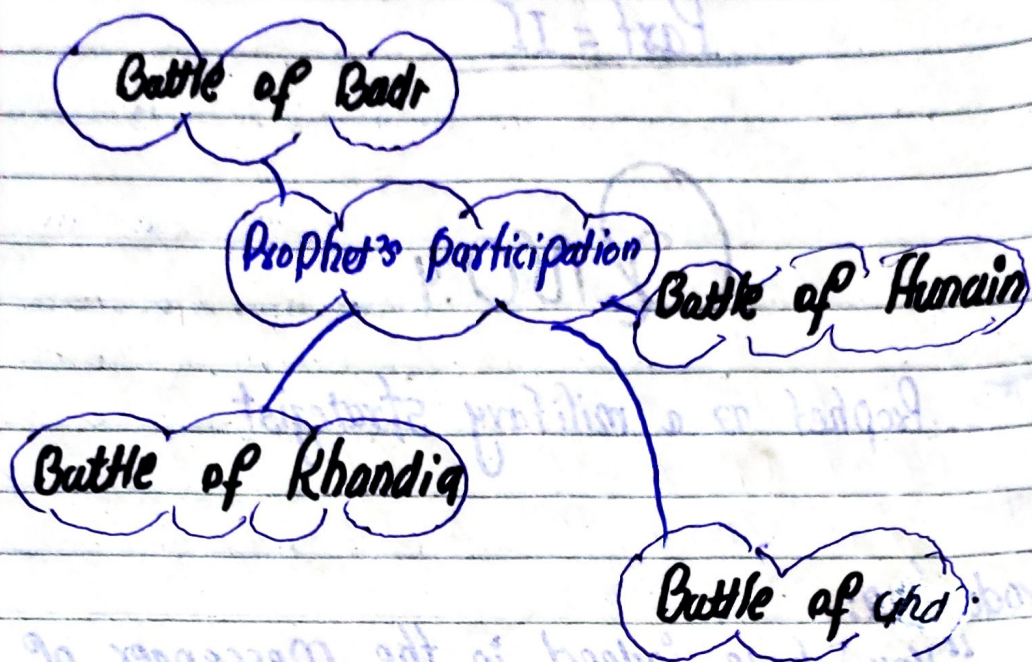 Battle of Badr
Prophet's participation
Battle of Hunain
Battle of Khandiq
Battle of